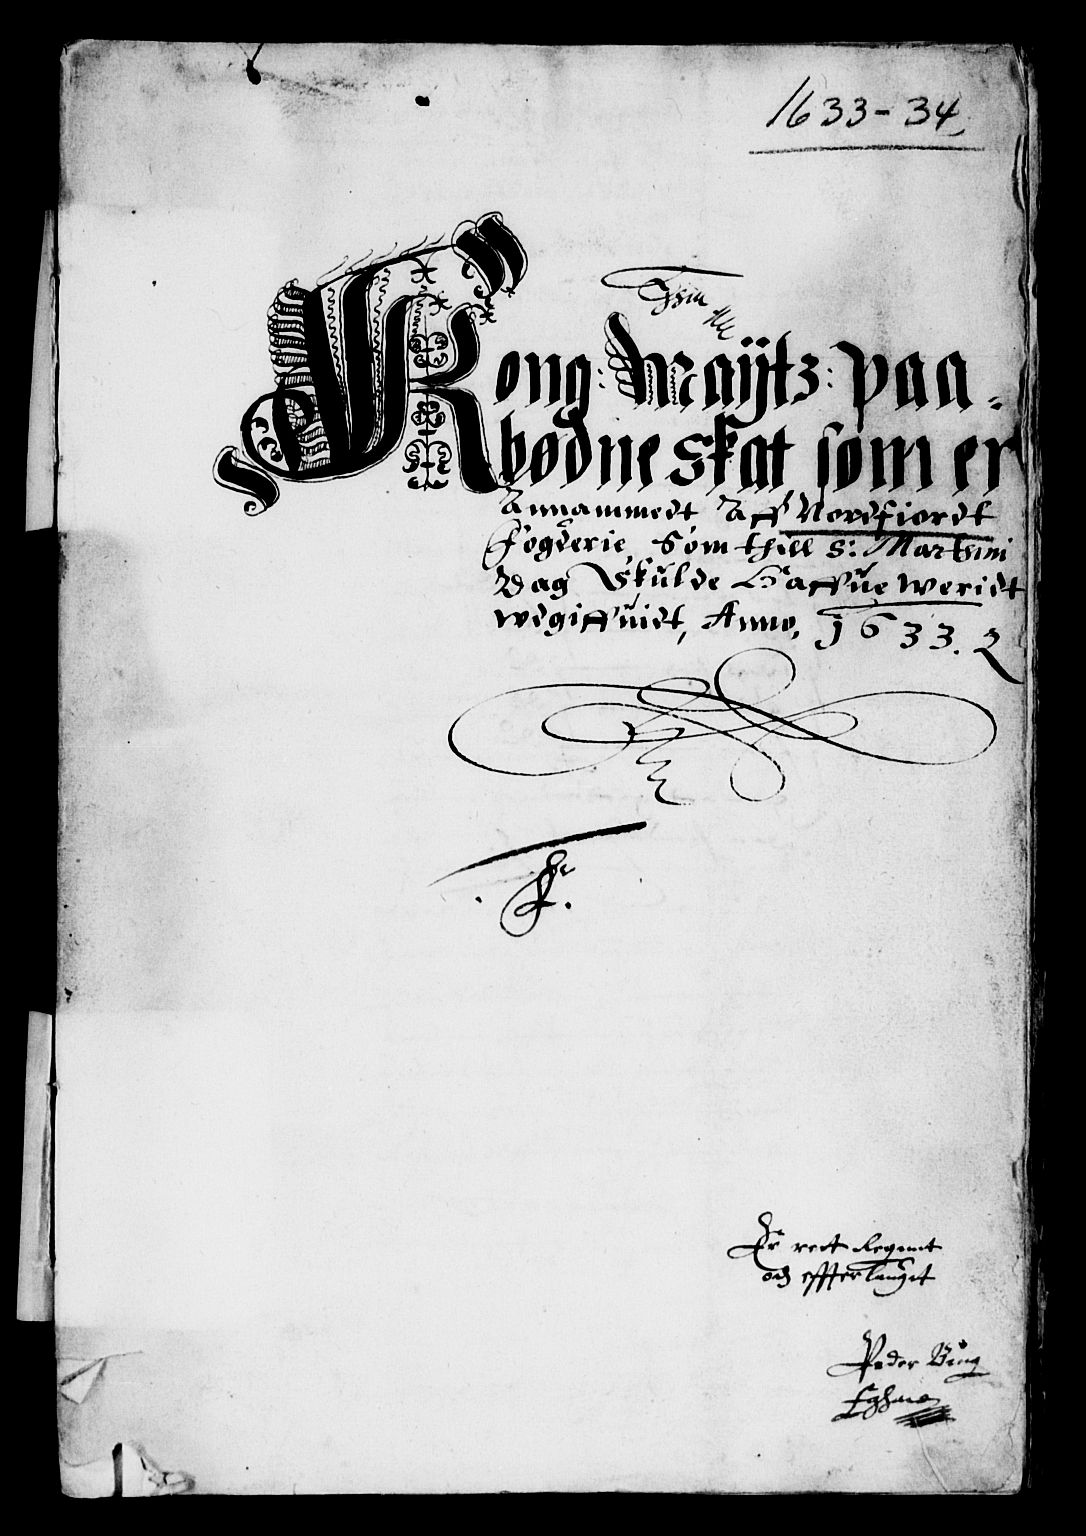 1633-34
Kong: Maÿtz: paa
bødne skat som er
Annammedt Aff Nordfiordt
Fogderie, Som thill S: Martini
Dag Skulde Haffue weridt
wdgiffuidt, Anno, 1633.
Er rett Regnnt
och effterlauget
Peder